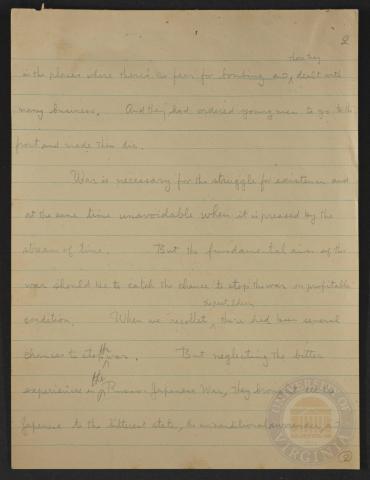 2
in the places where there's no fear for bombing out, dealt with
many business. And they had ordered young men to go to the
front and made them die.
War is necessary for the struggle for existence and
at the same time unavoidable when it is pressed by the
stream of time. But the fundamental aim of the
war should be to catch the chance to stop the war on profitable
condition. When we recollet, there had been several
chances to stop the war. But neglecting the bitter
experiences in the Russo-Japanese War, they brought the
Japanese to the bitterest state, the unconditional surrender,
2
UNIVERSITY OF VIRGINIA